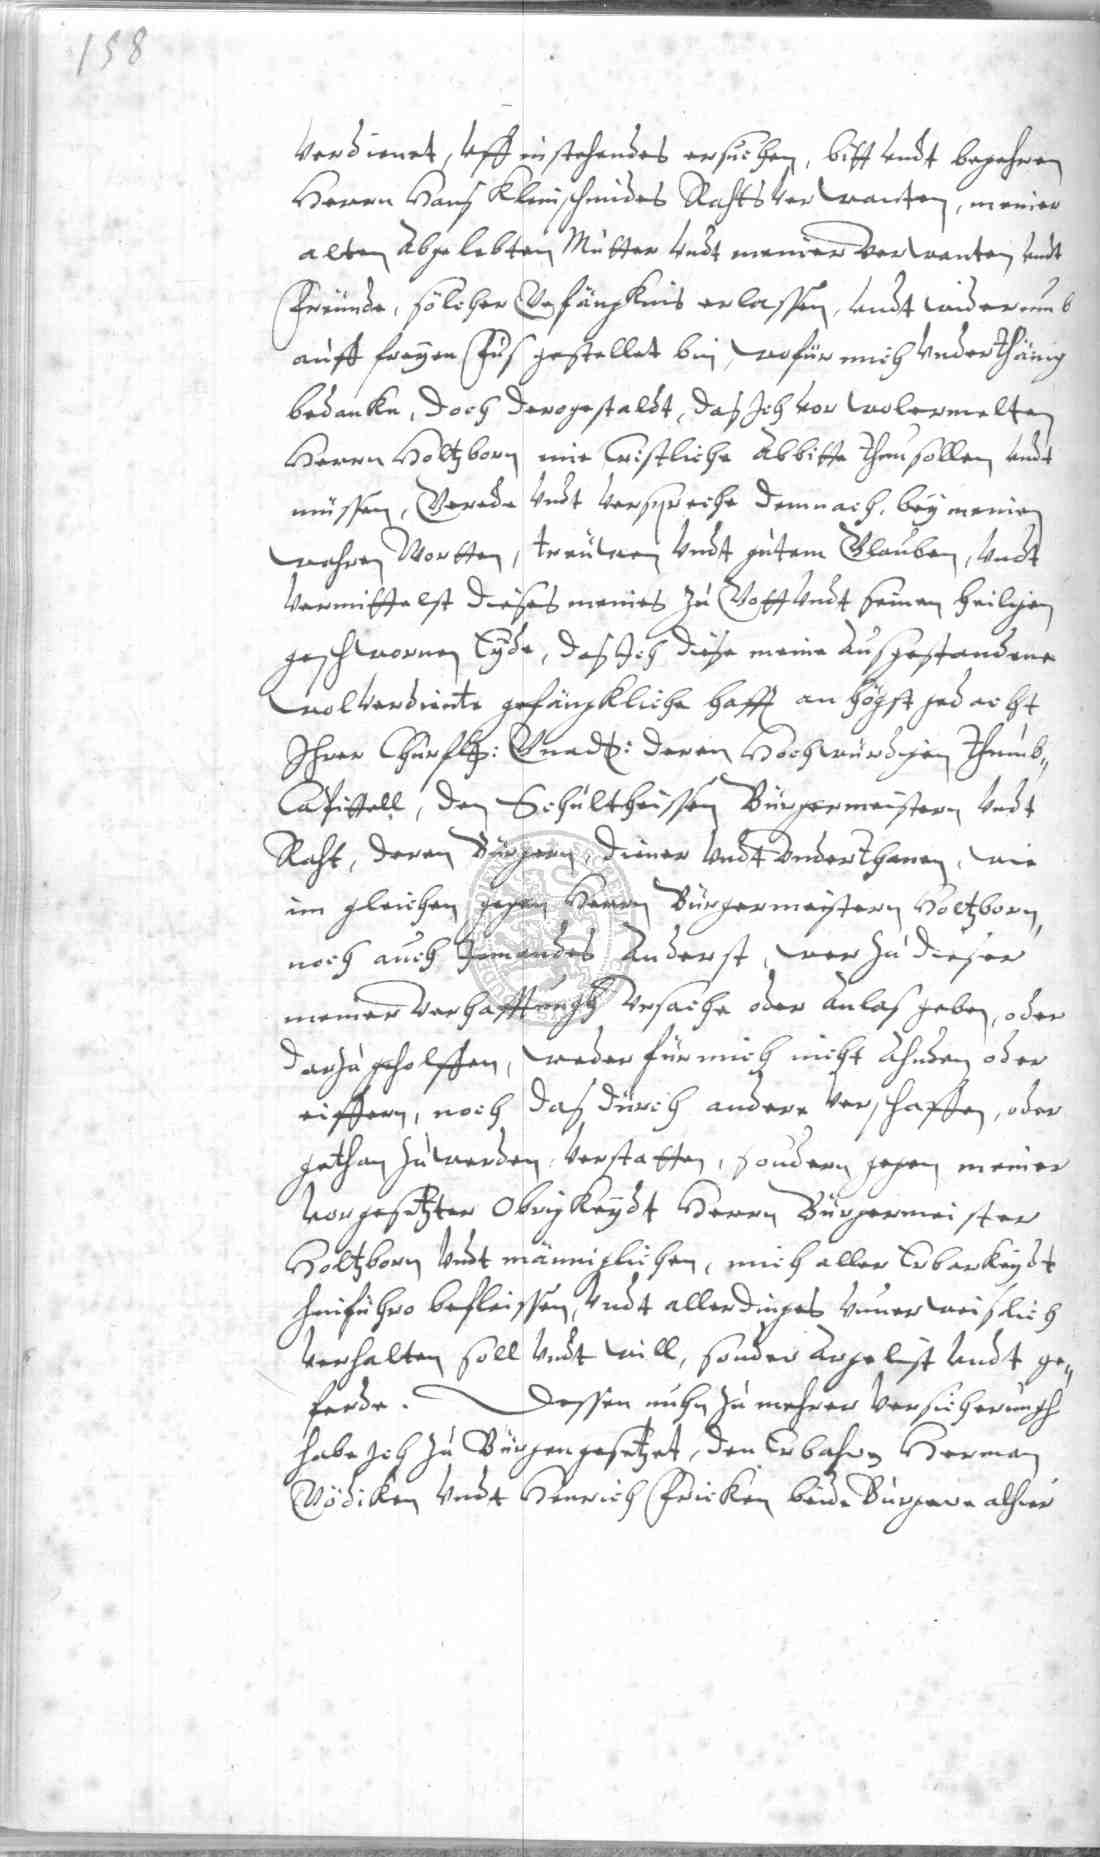 158
verdienet, uff instehendes ersuchen, bitt undt begehren
Herrn Hans Kleinschmides Rahts verwanten, meiner
alten abgelebten Mutter undt meiner verwanten undt
Freunde, solcher Gefängknis erlassen, undt widerumb
auff freyen Fus gestellet bin, wofür mich underthänig
bedanke, doch derogestaldt, das Ich vor wolermelten
Herrn Holtzborn eine Cristliche Abbitte thun sollen undt
müssen, Gerede undt verspreche demnach, bey meinen
wahren Wortten, treuwen undt gutem Glauben, undt
vermittelst dieses meines zu Gott undt seinen heiligen
geschwornen Eyde, das Ich diese meine ausgestandene
wolverdiente gefängkliche hafft an högst gedacht
Ihrer Churfl: Gnad: deren Hochwürdigen Thumb„
Capittell, den Schultheissen Bürgermeistern undt
Raht, deren Bürgern, diener undt underthanen, wie
im gleichen gegen Herrn Bürgermeistern Holtzborn,
noch auch Jemandes anderst, wer zu dieser
meiner verhafftungh ursache oder anlas geben, oder
darzu geholffen, weder für mich nicht ahnden oder
eiffern, noch das durch andere verschaffen, oder
gethan zu werden, verstatten, sondern gegen meiner
vorgesetzter Obrigkeydt Herrn Bürgermeister
Holtzborn undt männiglichen, mich aller Erbarkeydt
hinführo befleissen, undt allerdinges unverweislich
verhalten soll undt will, sonder argelist undt ge„
ferde. Dessen nuhn zu mehrer versicherungh
habe Ich zu Bürgen gesetzet, den Erbahren Herman
Gödiken undt Henrich Fricken beide Burgere alhier